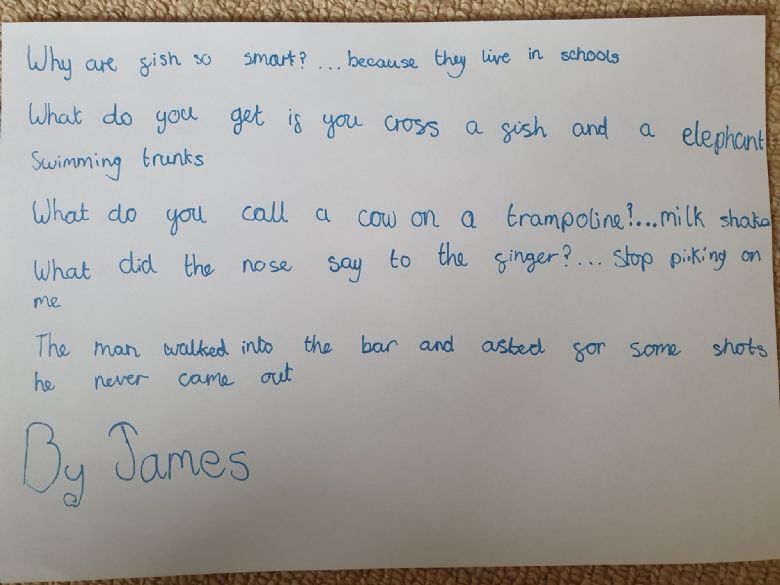 Why are fish so smart?...because they live in schools
What do you get if you cross a fish and a elephant
Swimming trunks
What do you call a cow on a trampoline!...milk shake
What did the nose say to the finger?... Stop picking on
me
The man walked into the bar and asked for some shots
he never came out
By James